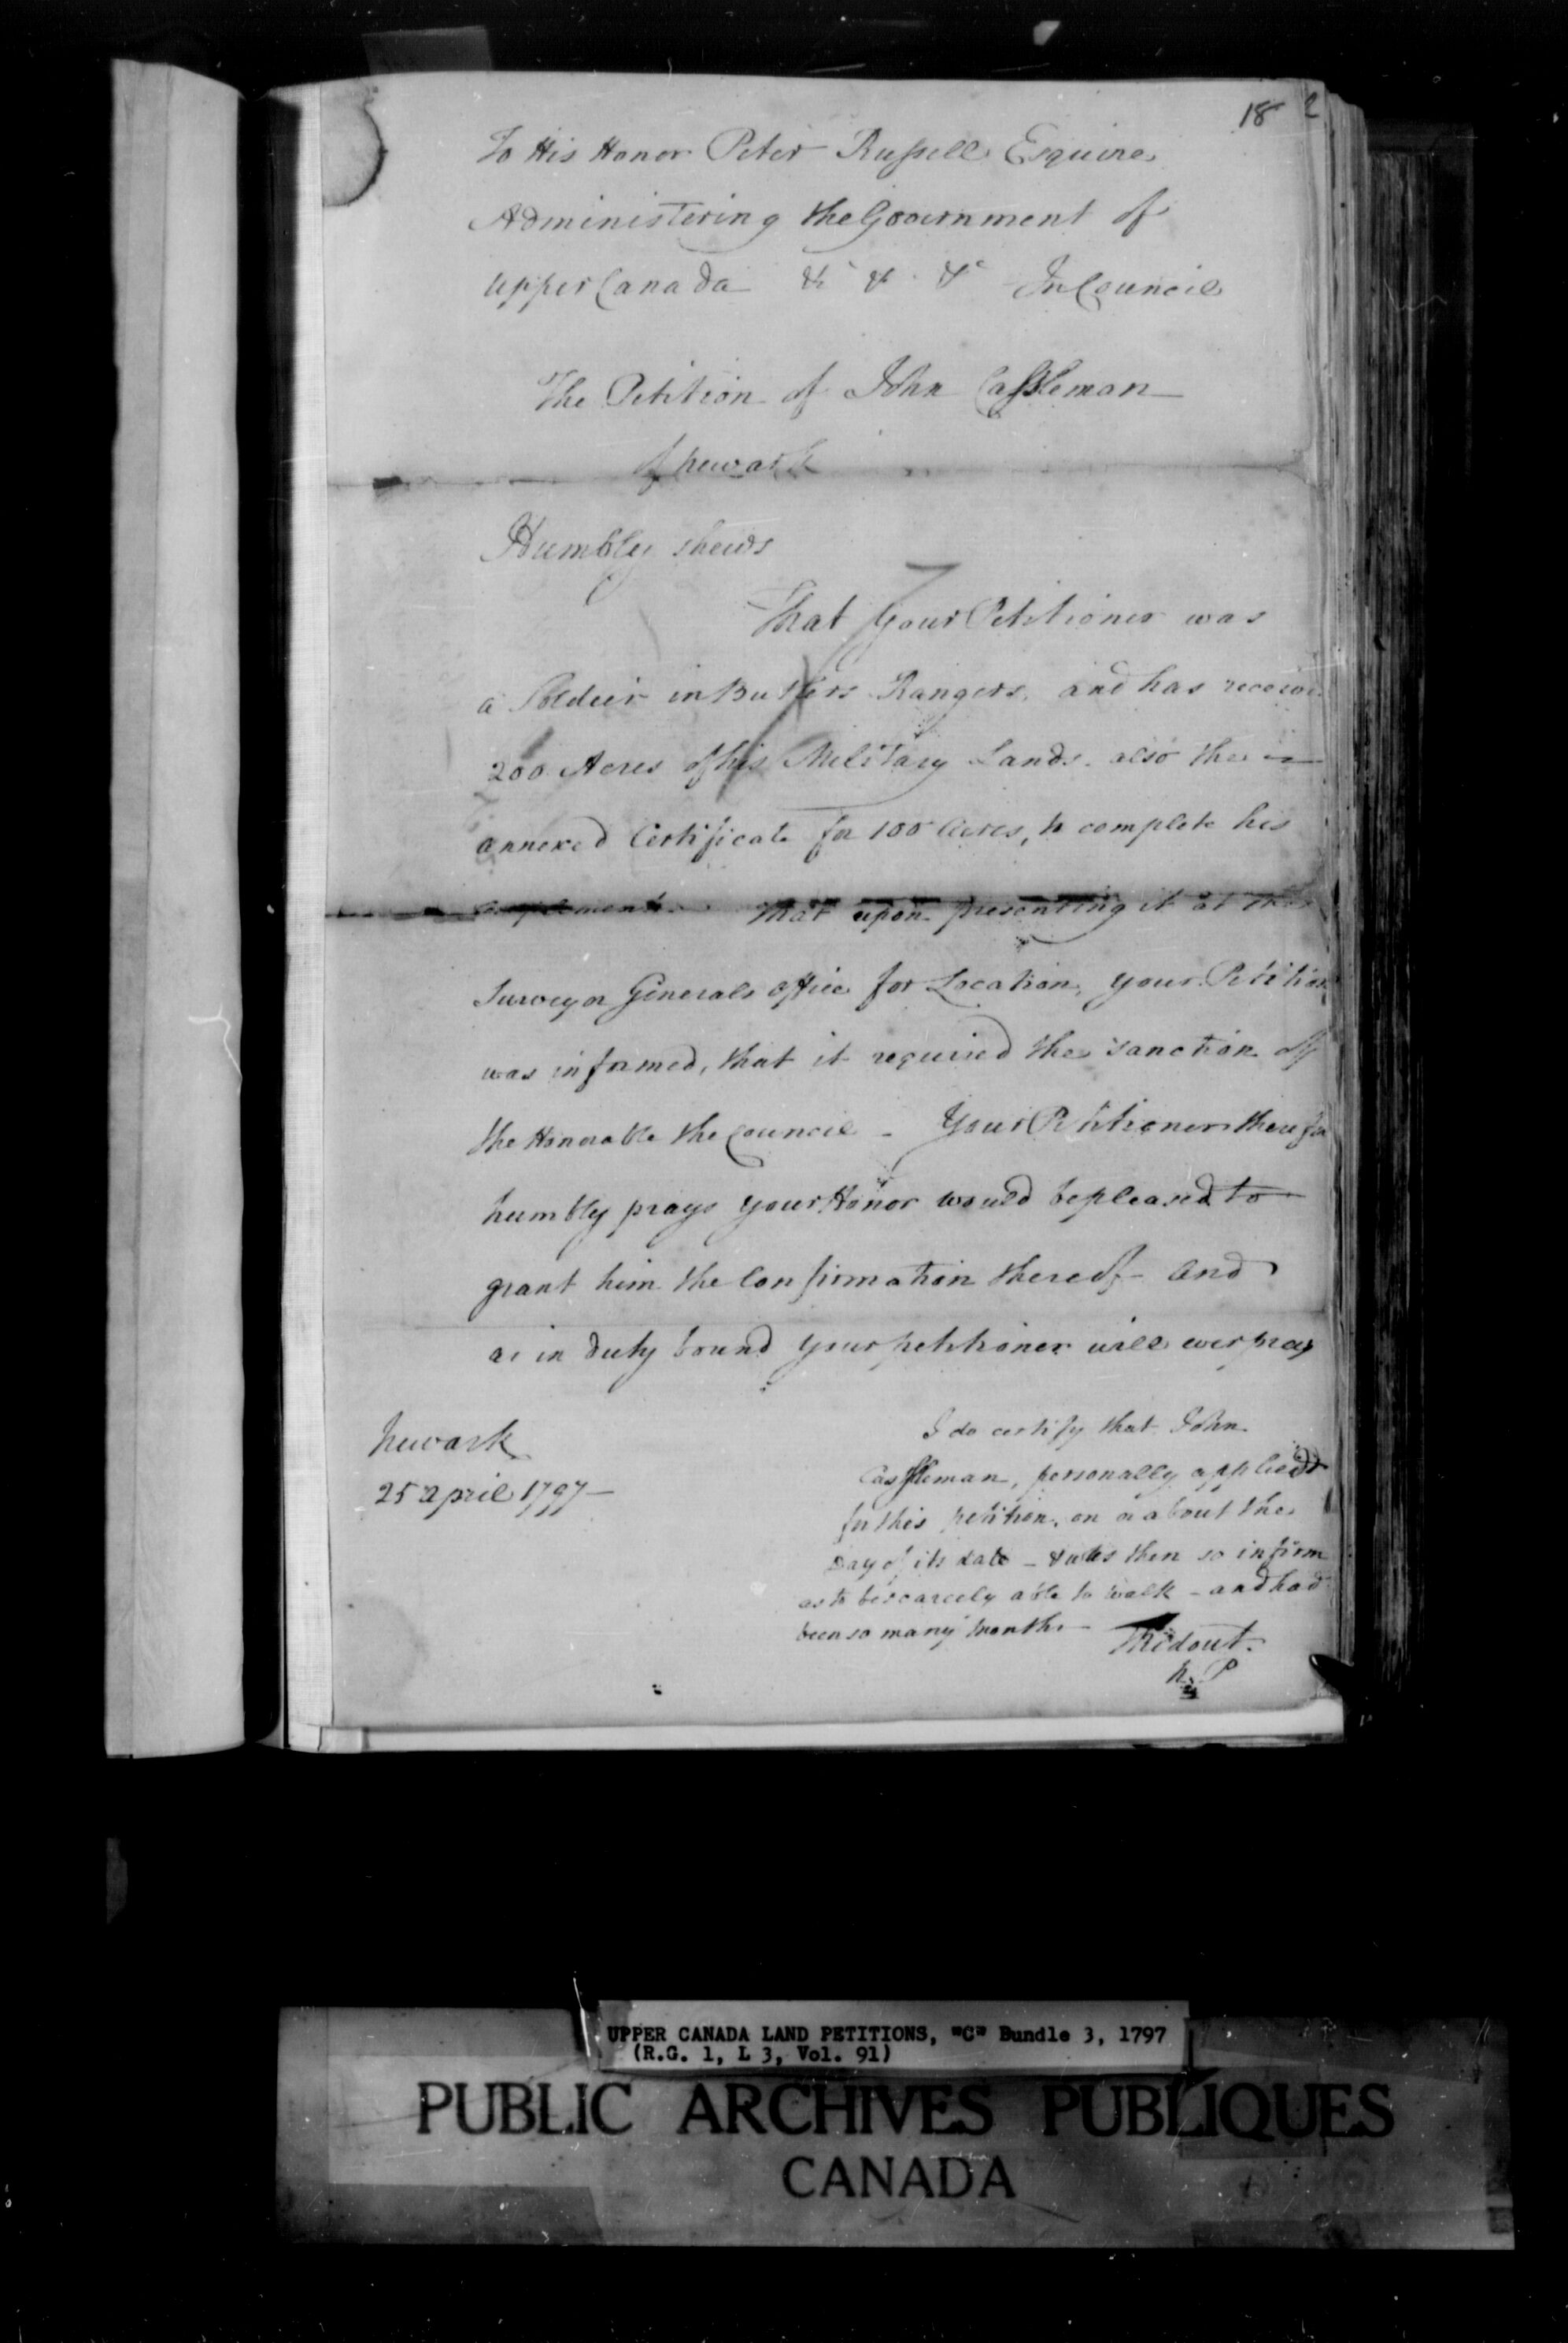 18
To His Honor Peter Russell Esquire
Administering the Government of
Upper Canada &c &c &c In Council
The Petition of John Cassleman
of Newark
Humbly shews
That Your Petitioner was
a Soldier in Butlers Rangers, and has receive
200 Acres of his Military Lands. also the
annexed Certificate for 100 Acres, to complete his
That upon presenting it at the
Surveyor Generals office for Location, your Petition
was informed, that it required the sanction of
the Honorable the Council - Your Petitioner therefor
humbly prays your Honor would be pleased to
grant him the Confirmation thereof - And
as in Duty bound your petitioner will ever pray
Newark
25 April 1797 -
I do certify that John
Cassleman, personally applied
for this petition, on or about the
Day of its date - & was then so infirm
as to be scarcely able to walk - and had
been so many months -
TRidout.
N. P
UPPER CANADA LAND PETITIONS, "C" Bundle 3, 1797
(R.G. 1, L 3, Vol. 91)
PUBLIC ARCHIVES PUBLIQUES
CANADA